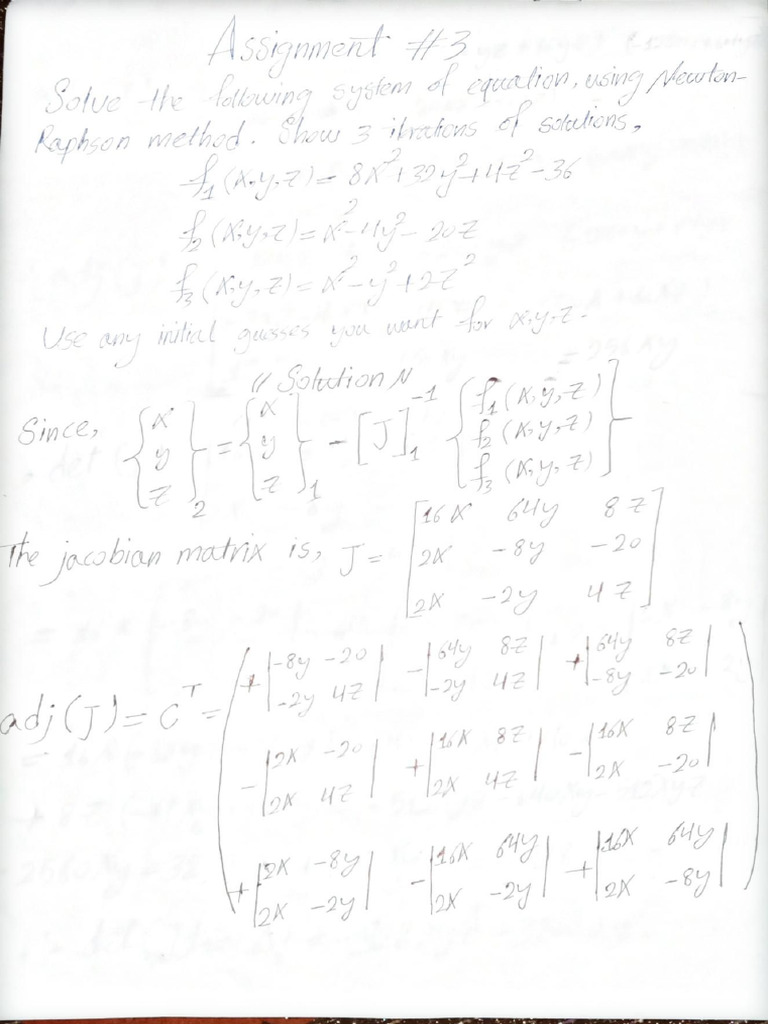 Assignment #3
Solve the following system of equation, using Newton-
Raphson method. Show 3 itrations of solutions,
f₁(x,y,z) = 8x² + 32y² + 4z² - 36
f₂(x,y,z) = x² - 4y² - 20z
f₃(x,y,z) = x² - y² + 2z²
Use any initial guesses you want for x,y,z.
// Solution //
Since, {x y z}₂ = {x y z}₁ - [J]₁⁻¹ {f₁(x,y,z) f₂(x,y,z) f₃(x,y,z)}
The jacobian matrix is, J = [16x 64y 8z
2x -8y -20
2x -2y 4z]
adj(J) = Cᵀ = (+|-8y -20 -2y 4z| -|64y 8z -2y 4z| +|64y 8z -8y -20|
-|2x -20 2x 4z| +|16x 8z 2x 4z| -|16x 8z 2x -20|
+|2x -8y 2x -2y| -|16x 64y 2x -2y| +|16x 64y 2x -8y|)